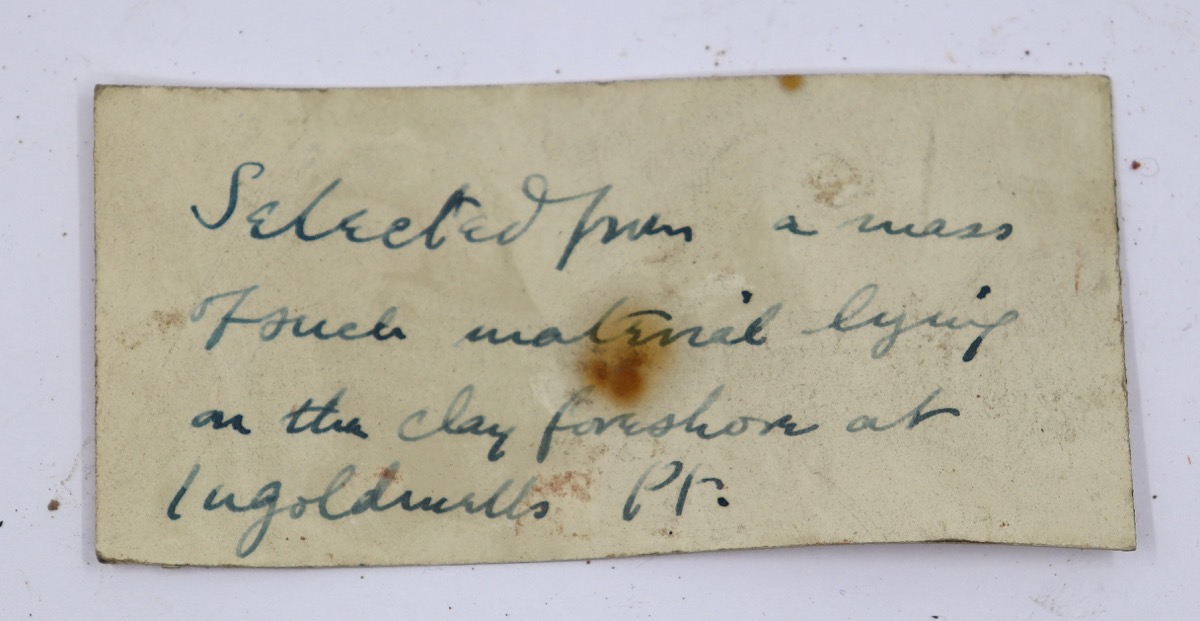 Selected from a mass
of such material lying
on the clay foreshore at
Ingoldmells Pt.